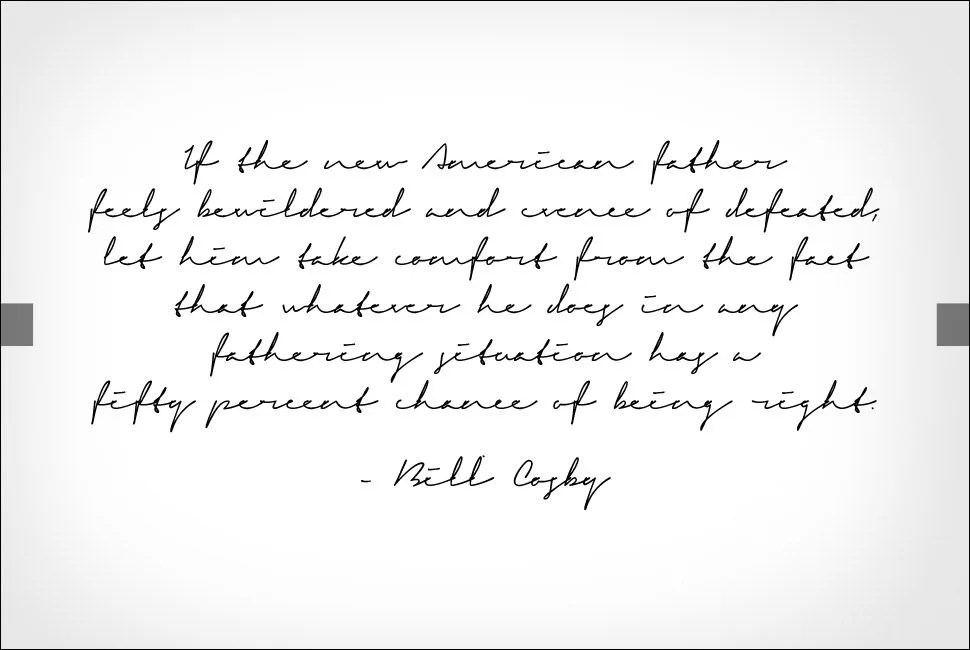 If the new American father
feels bewildered and even of defeated,
let him take comfort from the fact
that whatever he does in any
fathering situation has a
fifty percent chance of being right.
- Bill Cosby